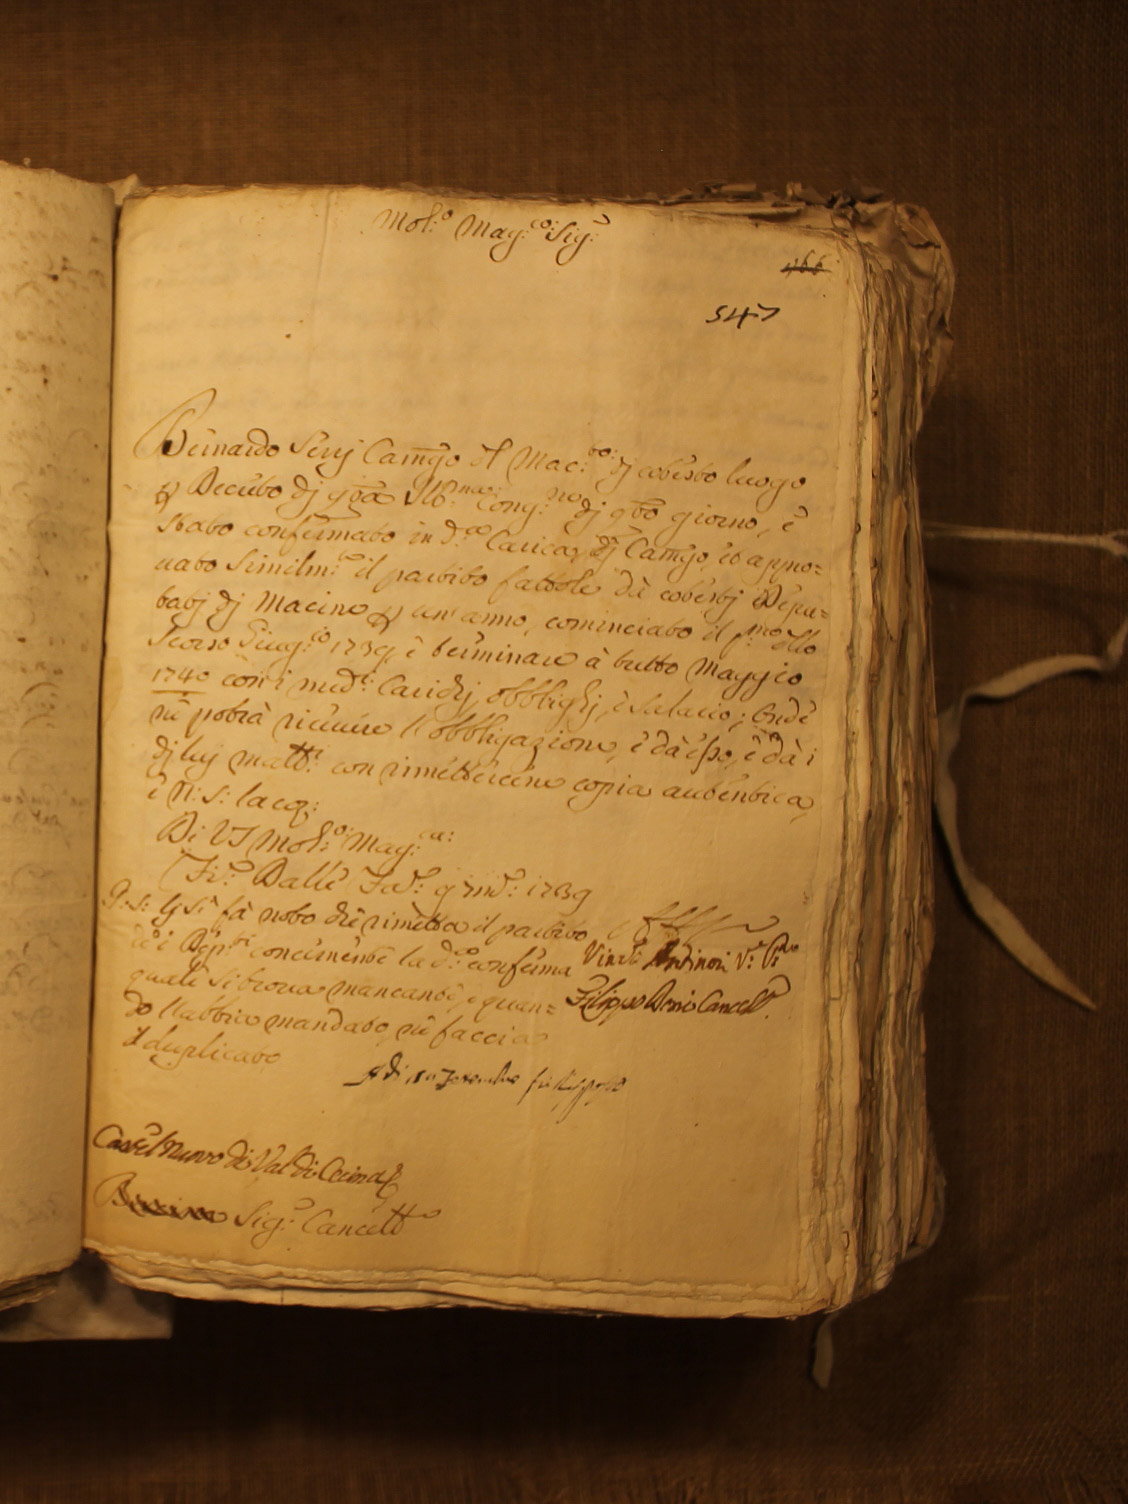 Mol:º Mag:co: Sig:
166
547
Bernardo Serj Cam̄go del Mac:to: dj cotesto luogo
p Decreto dj q̄ta Ill:ma: Cong:ne dj q̄to giorno, è
stato confermato in d:a Carica dj Cam̄go, ed appro=
vato similm:e il partito fattole dà cotestj Depu=
tatj dj Macine p un' anno, cominciato il p:mo dello
scorso Giug:o 1739, è terminare à tutto Maggio
1740 con i med:i Carichj, obblighj, è salario; onde
ne potrà ricevere l'obbligazione, è dà esso, è dà i
dj luj Matt:i con rimettercene copia autentica,
è N: S: la cq:
Di VS Mol:o: Mag:ca:
Fir:e Dalle Fa:e 9 Xmb:e 1739
P: S: Gj si fà noto che rimetta il partito
de i Dep:ti concernente la d:a conferma
quale si trova mancante, e quan=
do l'abbia mandato, ne faccia
il duplicato
Vinc:o Antinori V:e P:re
Filippo Doni Cancell:e
A dì 10 Xcembre
Castel Nuovo di Val di Cecina
Sig:e Cancell:e